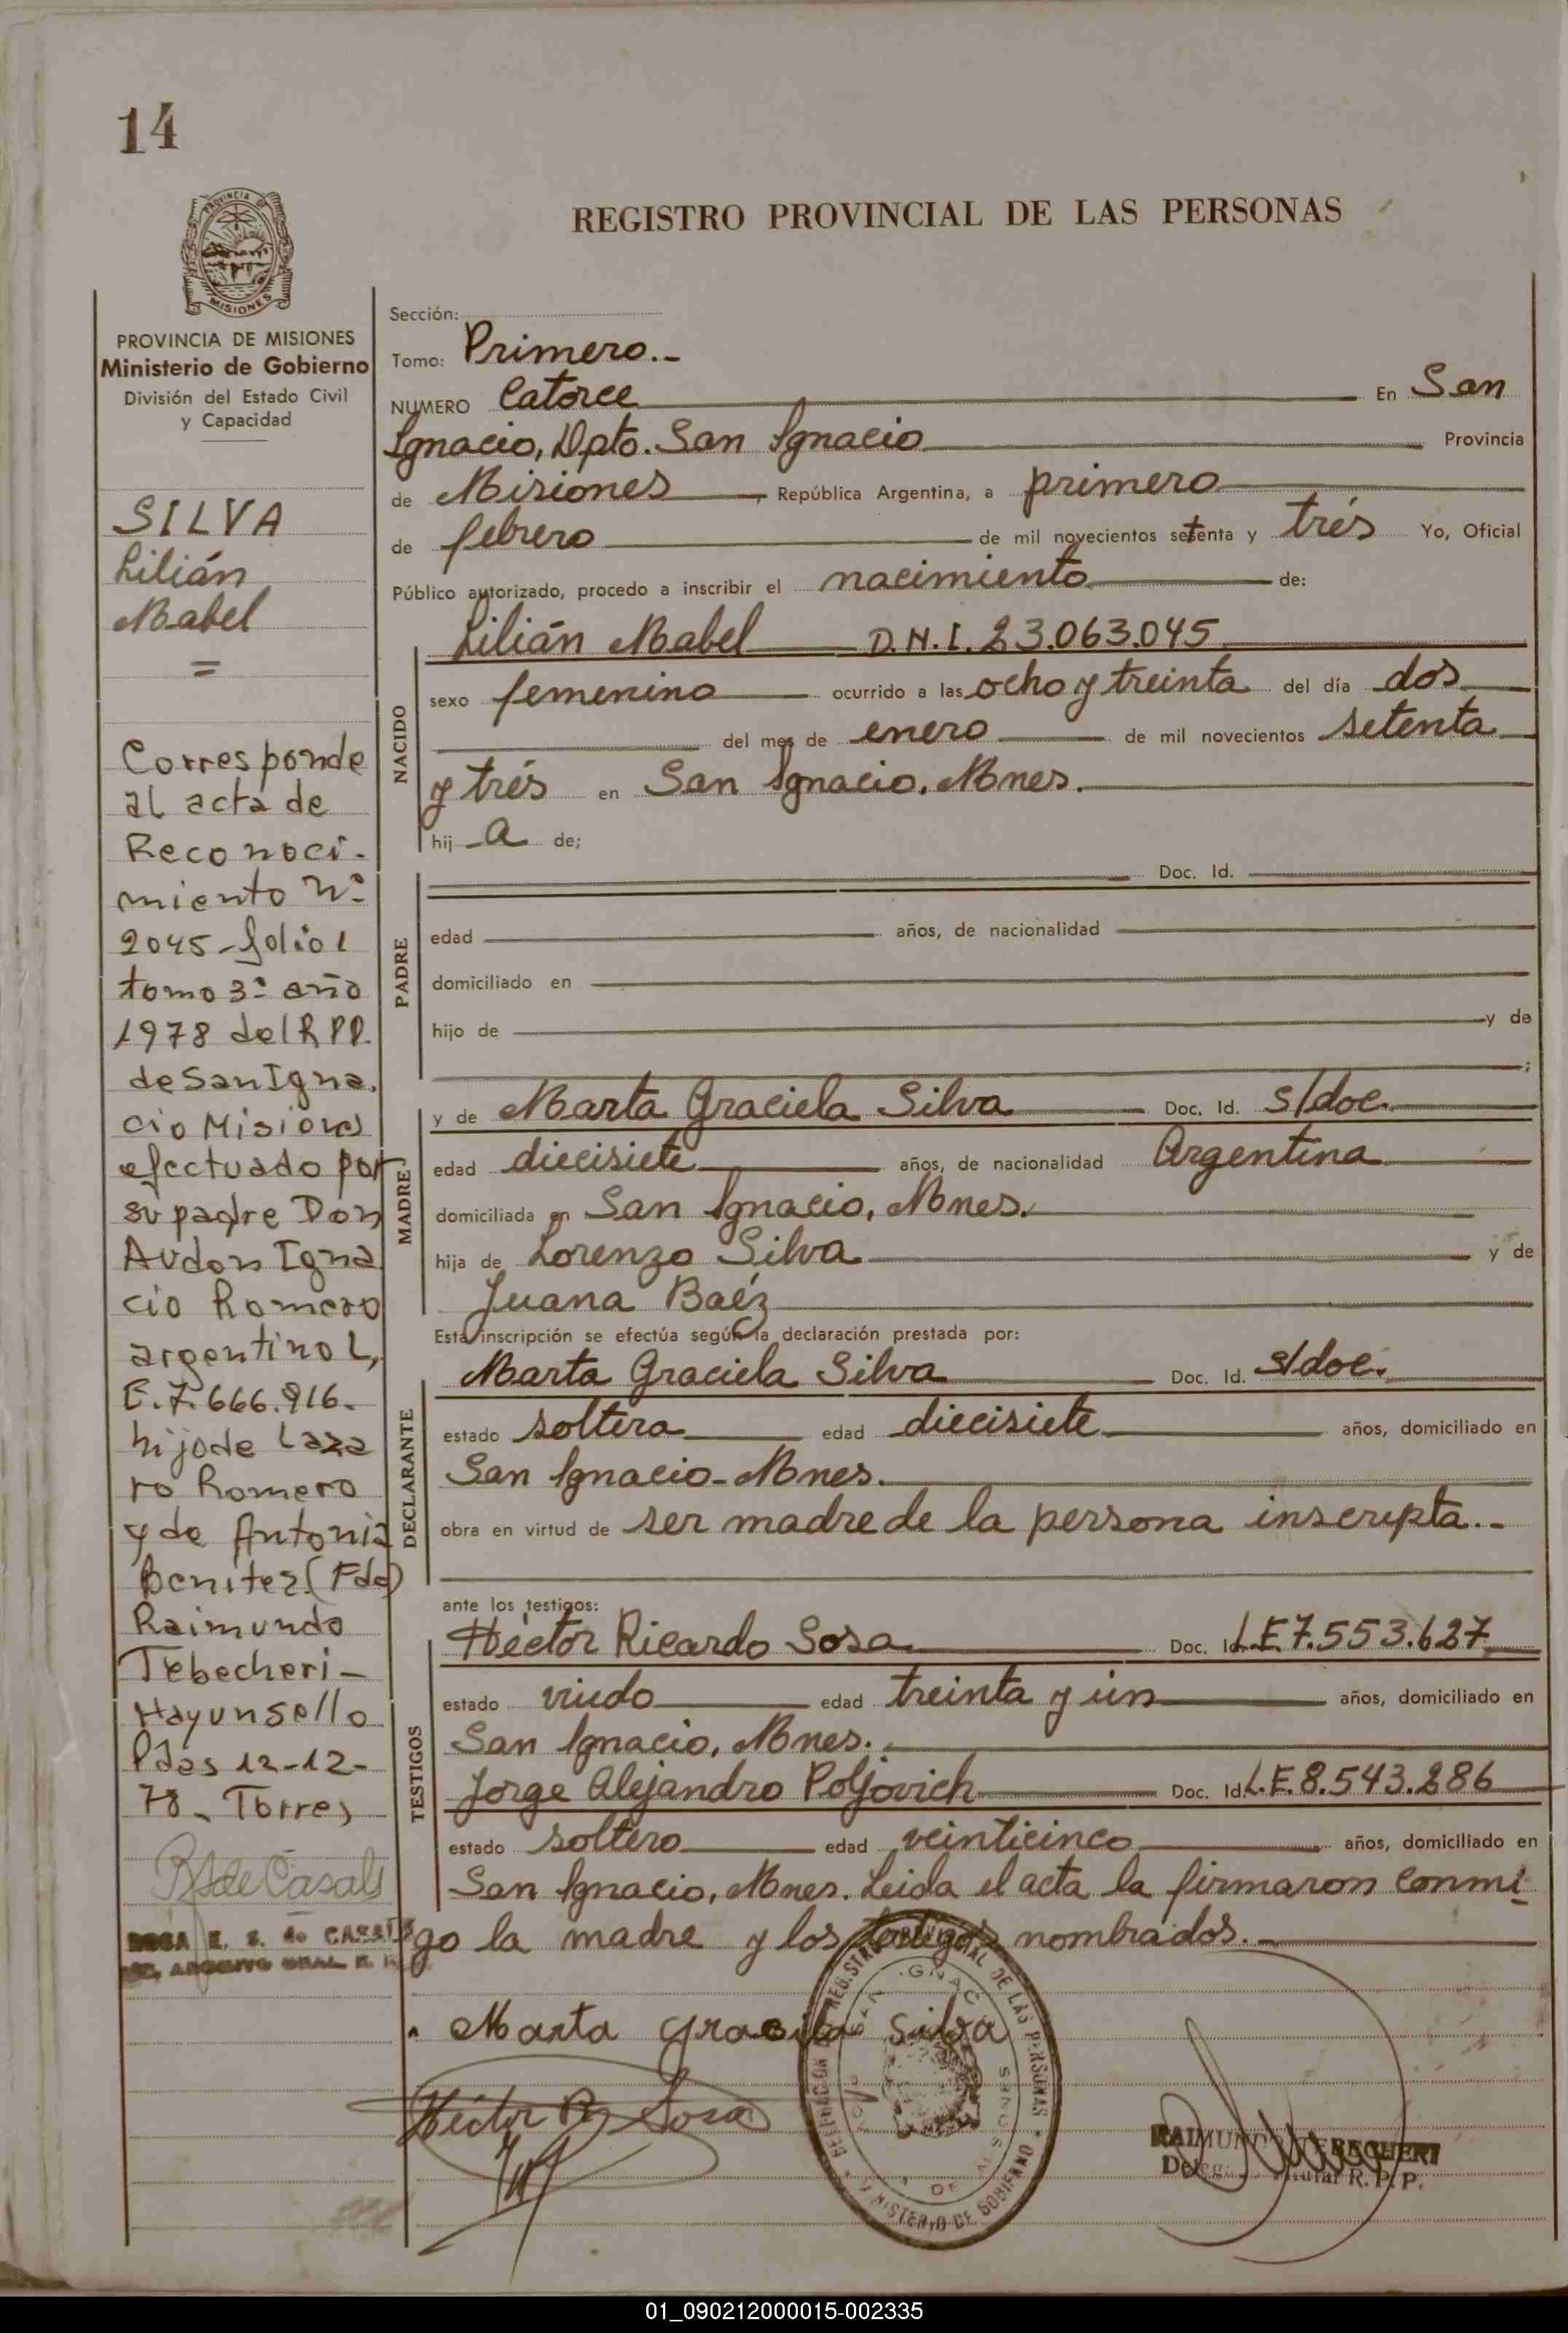 14
PROVINCIA DE
MISIONES
REGISTRO PROVINCIAL DE LAS PERSONAS
PROVINCIA DE MISIONES
Ministerio de Gobierno
División del Estado Civil
y Capacidad
SILVA
Lilián
Mabel
=
Corresponde
al acta de
Reconoci-
miento Nº
2045-folio 1
tomo 3º año
1978 del R P P.
de San Igna.
cio Misiones
efectuado por
su padre Don
Audon Igna
cio Romero
argentino L,
E. 7.666.916.
hijo de Laza
ro Romero
y de Antonia
Benitez (Fdo)
Raimundo
Tebecheri-
Hay un sello
Pdas 12-12-
78- Torres
ROSA E. S. de CASALS
Sección:
Tomo: Primero.-
NUMERO Catorce En San
Ignacio, Dpto. San Ignacio Provincia
de Misiones, República Argentina, a primero
de febrero de mil novecientos setenta y trés Yo, Oficial
Público autorizado, procedo a inscribir el nacimiento de:
NACIDO
Lilián Mabel D.N.I. 23.063.045
sexo femenino ocurrido a las ocho y treinta del día dos
del mes de enero de mil novecientos setenta
y trés en San Ignacio, Mnes.
hij a de;
PADRE
Doc. Id.
edad años, de nacionalidad
domiciliado en
hijo de y de
;
MADRE
y de Marta Graciela Silva Doc. Id. s/doc.
edad diecisiete años, de nacionalidad Argentina
domiciliada en San Ignacio, Mnes.
hija de Lorenzo Silva y de
Juana Baéz
Esta inscripción se efectúa según la declaración prestada por:
DECLARANTE
Marta Graciela Silva Doc. Id. s/doc.
estado soltera edad diecisiete años, domiciliado en
San Ignacio-Mnes.
obra en virtud de ser madre de la persona inscripta.-
ante los testigos:
TESTIGOS
Héctor Ricardo Sosa Doc. Id. L.E. 7.553.627
estado viudo edad treinta y ún años, domiciliado en
San Ignacio, Mnes.
Jorge Alejandro Poljovich Doc. Id. L.E. 8.543.286
estado soltero edad veinticinco años, domiciliado en
San Ignacio, Mnes. Leida el acta la firmaron conmi
go la madre y los testigos nombrados.-
Marta Graciela Silva
Héctor R. Sosa
REGISTRO PROVINCIAL DE LAS PERSONAS
MINISTERIO DE GOBIERNO
SAN IGNACIO
RAIMUNDO TEBECHERI
Deleg. Titular R. P. P.
01_090212000015-002335